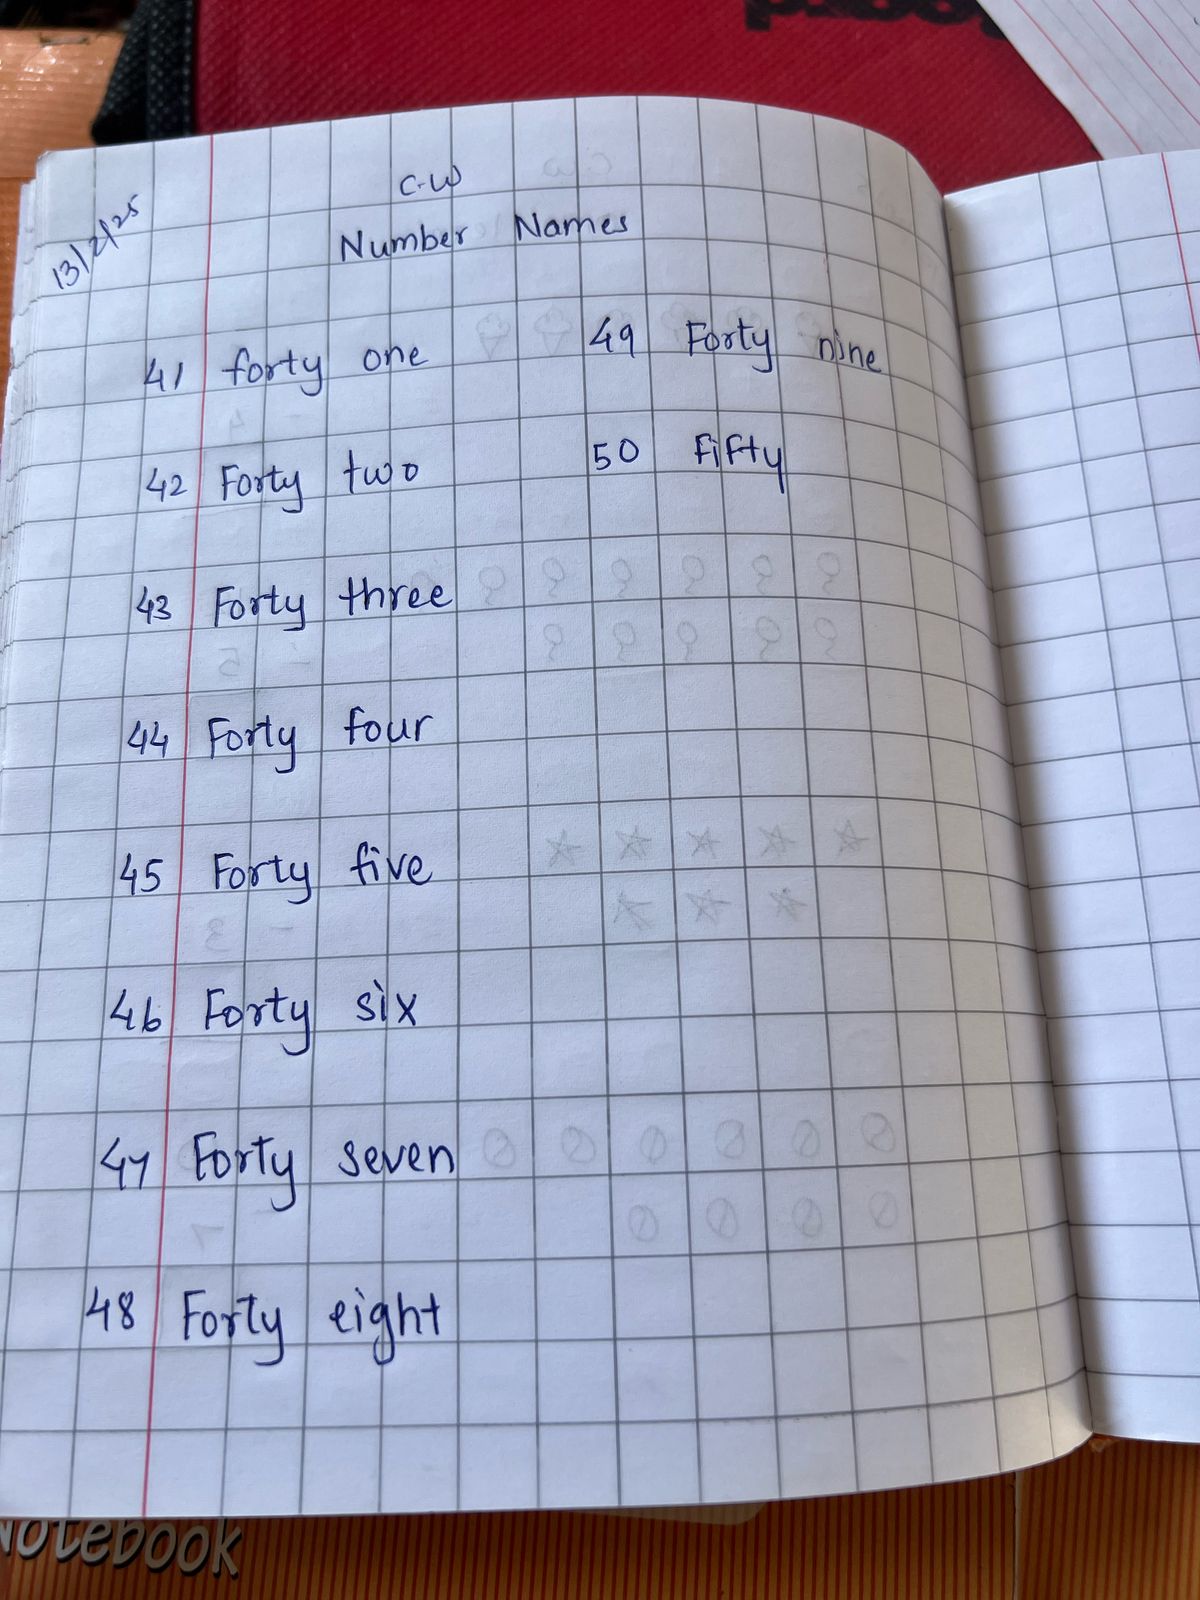 C.W
13/2/25
Number Names
41 forty one
42 Forty two
43 Forty three
44 Forty four
45 Forty five
46 Forty six
47 Forty seven
48 Forty eight
49 Forty nine
50 Fifty
Notebook